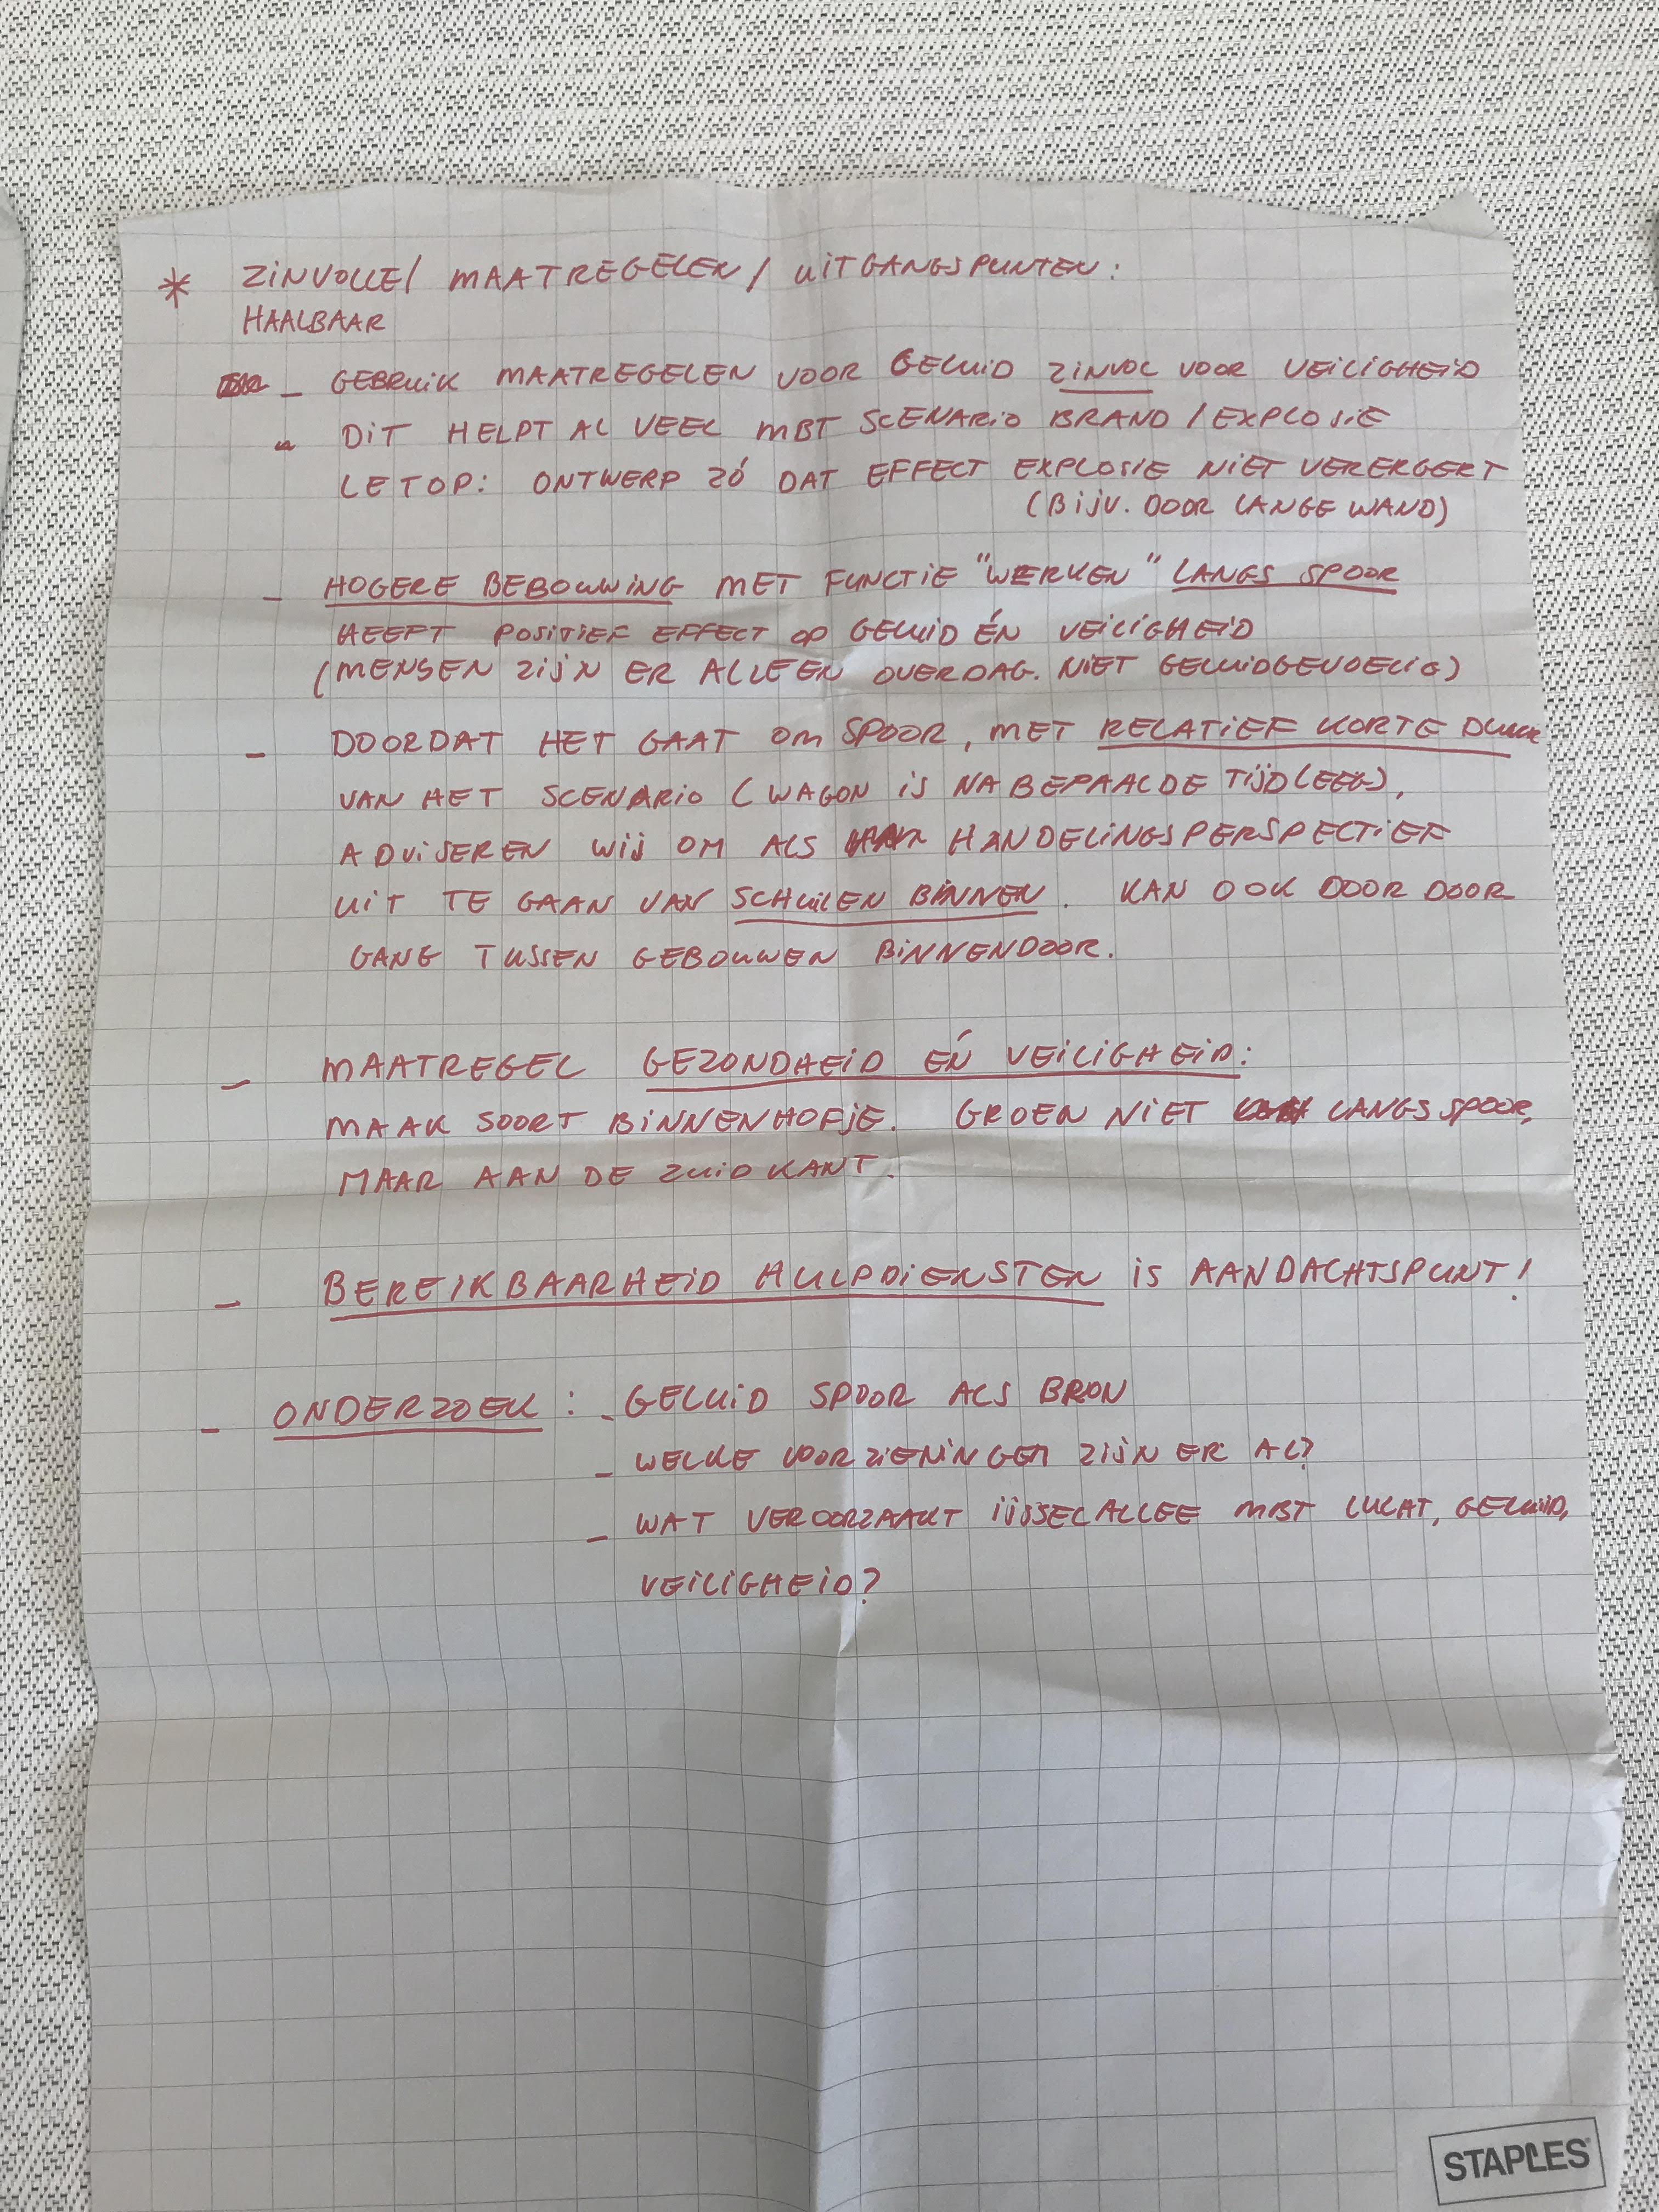 * ZINVOLLE/ MAATREGELEN / UITGANGSPUNTEN:
HAALBAAR
- GEBRUIK MAATREGELEN VOOR GELUID ZINVOL VOOR VEILIGHEID
DIT HELPT AL VEEL MBT SCENARIO BRAND / EXPLOSIE
LETOP: ONTWERP ZÓ DAT EFFECT EXPLOSIE NIET VERERGERT
(BIJV. DOOR LANGE WAND)
- HOGERE BEBOUWING MET FUNCTIE "WERKEN" LANGS SPOOR
HEEFT POSITIEF EFFECT OP GELUID ÉN VEILIGHEID
(MENSEN ZIJN ER ALLEEN OVERDAG. NIET GELUIDGEVOELIG)
- DOORDAT HET GAAT OM SPOOR, MET RELATIEF KORTE DUUR
VAN HET SCENARIO (WAGON IS NA BEPAALDE TIJD LEEG),
ADVISEREN WIJ OM ALS HANDELINGSPERSPECTIEF
UIT TE GAAN VAN SCHUILEN BINNEN. KAN OOK DOOR DOOR
GANG TUSSEN GEBOUWEN BINNENDOOR.
- MAATREGEL GEZONDHEID ÉN VEILIGHEID:
MAAK SOORT BINNENHOFJE. GROEN NIET LANGS SPOOR,
MAAR AAN DE ZUIDKANT.
- BEREIKBAARHEID HULPDIENSTEN IS AANDACHTSPUNT!
- ONDERZOEK: - GELUID SPOOR ALS BRON
- WELKE VOORZIENINGEN ZIJN ER AL?
- WAT VEROORZAAKT IJSSELALLEE MBT LUCHT, GELUID,
VEILIGHEID?
STAPLES